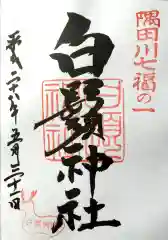 隅田川七福の一
白鬚神社
平成二十六年五月三十一日